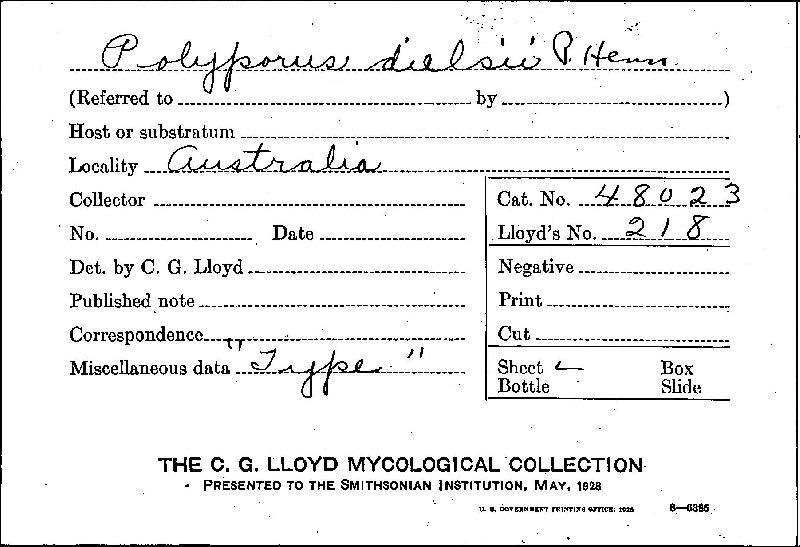 Polyporus dielsii P. Henn.
(Referred to by )
Host or substratum
Locality Australia
Collector
Cat. No. 48023
No. Date
Lloyd's No. 218
Det. by C. G. Lloyd
Negative
Published note
Print
Correspondence
Cut
Miscellaneous data "Type"
Sheet Box
Bottle Slide
THE C. G. LLOYD MYCOLOGICAL COLLECTION
PRESENTED TO THE SMITHSONIAN INSTITUTION, MAY, 1928
U. S. GOVERNMENT PRINTING OFFICE: 1928 8—6385